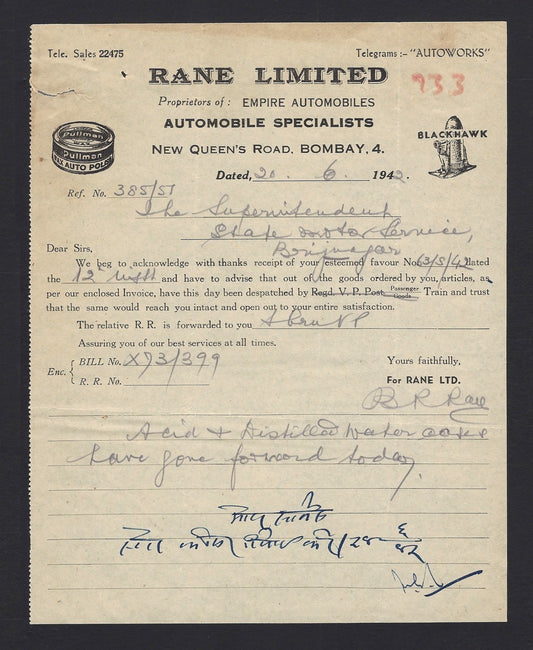 Tele. Sales 22475
Telegrams :- "AUTOWORKS"
RANE LIMITED
933
Proprietors of : EMPIRE AUTOMOBILES
AUTOMOBILE SPECIALISTS
Pullman
Pullman
AUTO POLISH
BLACKHAWK
NEW QUEEN'S ROAD, BOMBAY, 4.
Dated, 20. 6. 1942.
Ref. No. 385/51
The Superintendent
State Motor Service,
Brijnagar
Dear Sirs,
We beg to acknowledge with thanks receipt of your esteemed favour No 63/5/42 dated
the 12 inst and have to advise that out of the goods ordered by you, articles, as
per our enclosed Invoice, have this day been despatched by Regd. V. P. Post Passenger Goods Train and trust
that the same would reach you intact and open out to your entire satisfaction.
The relative R. R. is forwarded to you
Assuring you of our best services at all times.
Enc. { BILL No. X73/399
R. R. No.
Yours faithfully,
For RANE LTD.
B R Rane
Acid & Distilled Water cases
have gone forward today.